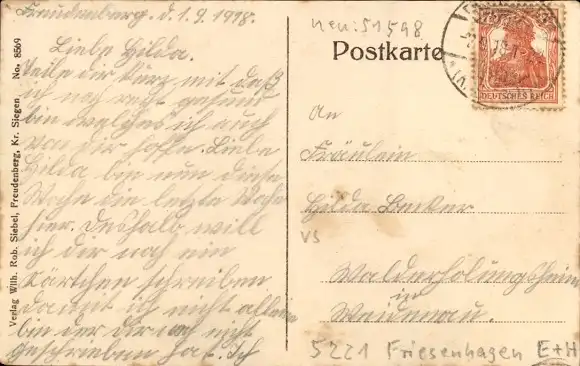 Freudenberg. d. 1.9.1918.
Liebe Hilda.
Teile dir kurz mit daß
ich noch recht gesund
bin welches ich auch
von dir hoffe. Liebe
Hilda bin nun diese
Woche die letzte Woche
hier. Deshalb will
ich dir noch ein
Kärtchen schreiben
damit ich nicht allein
bin der dir noch nicht
geschrieben hat. Ich
Verlag Wilh. Rob. Siebel, Freudenberg, Kr. Siegen No. 8569
neu: 51598
Postkarte
DEUTSCHES REICH
An
Fräulein
Hilda Becker
vs
Walderholungsheim
in
Weidenau.
5221 Friesenhagen E+H